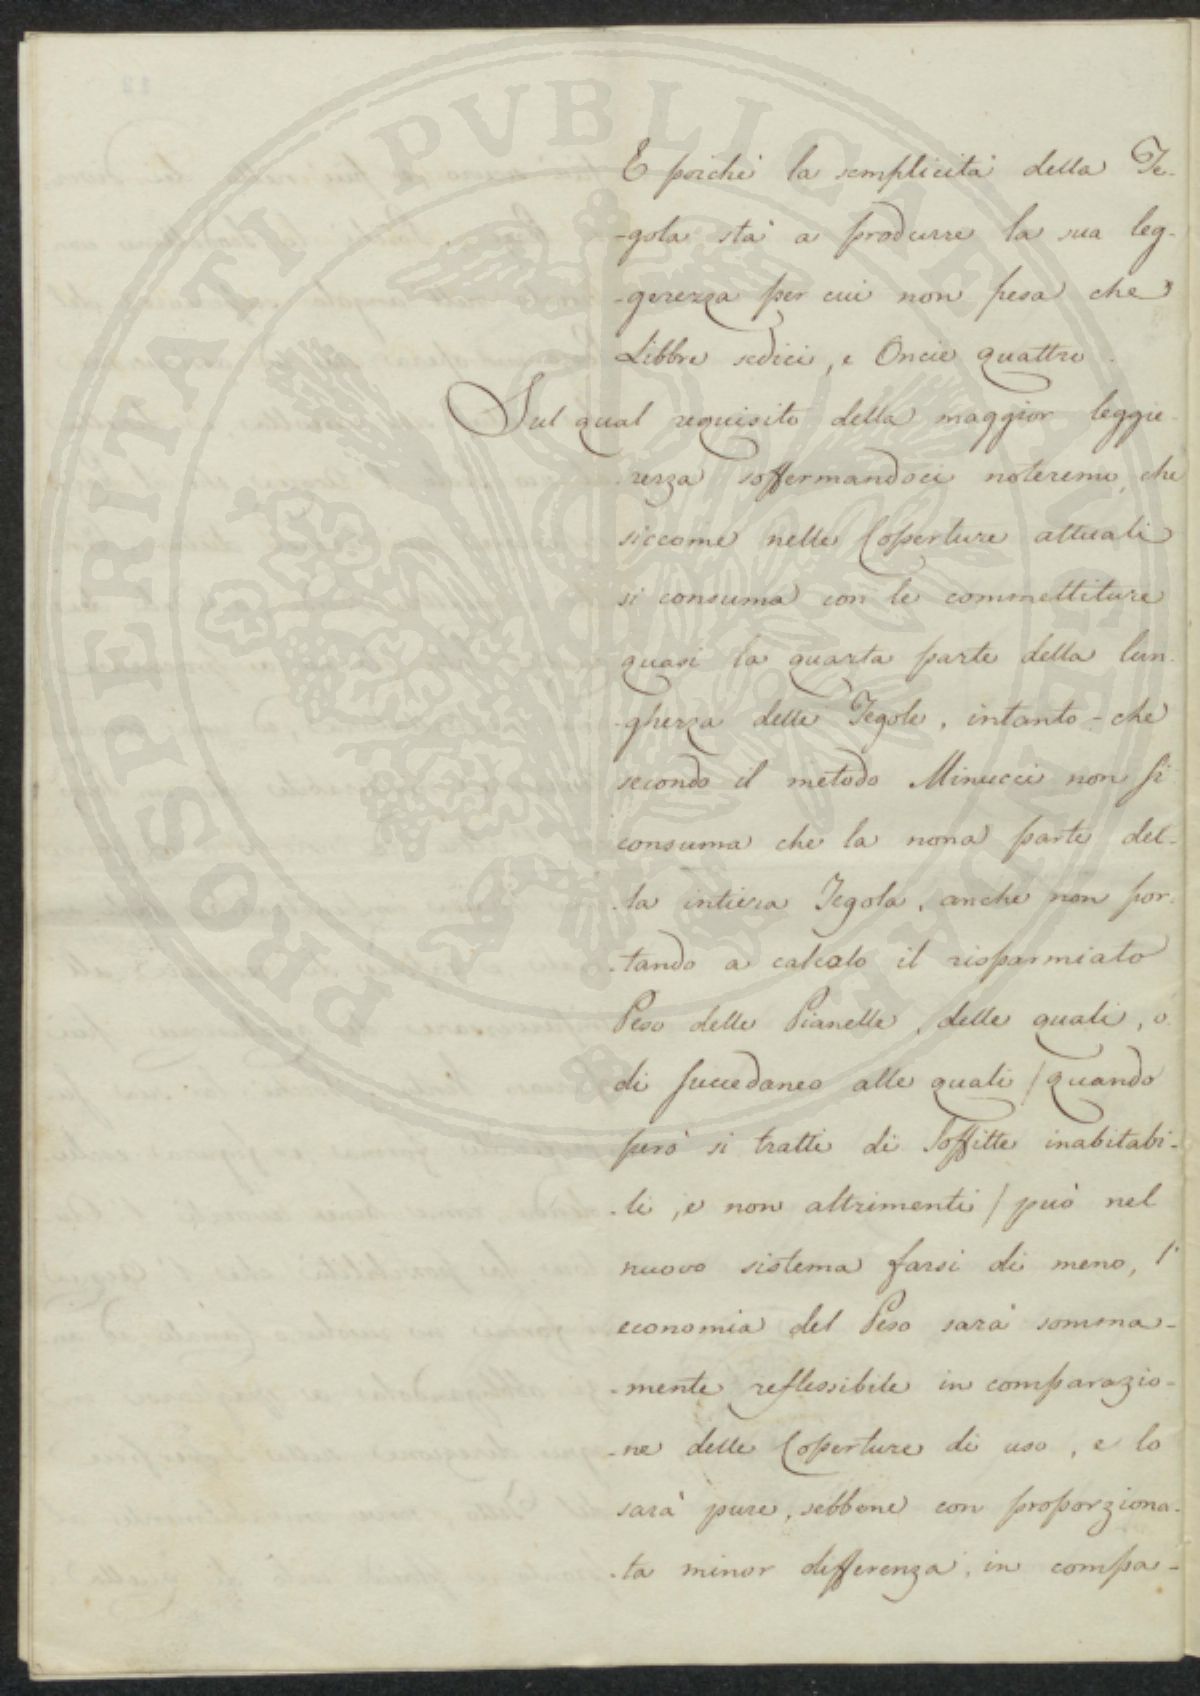 E poichè la semplicità della Te-
-gola stà a produrre la sua leg-
-gerezza per cui non pesa che
Libbre sedici, e Oncie quattro.
Sul qual requisito della maggior leggie-
-rezza soffermandoci noteremo, che
siccome nelle Coperture attuali
si consuma con le commettiture
quasi la quarta parte della lun-
-ghezza delle Tegole, intanto-che
secondo il metodo Minucci non si
consuma che la nona parte del-
-la intiera Tegola, anche non por-
-tando a calcolo il risparmiato
Peso delle Pianelle, delle quali, o
di succedaneo alle quali / quando
però si tratti di Soffitte inabitabi-
-li, e non altrimenti / può nel
nuovo sistema farsi di meno, l'
economia del Peso sarà somma-
-mente reflessibile in comparazio-
-ne delle Coperture di uso, e lo
sarà pure, sebbene con proporziona-
-ta minor differenza, in compa-
PROSPERITATI PVBLICAE AVGENDAE